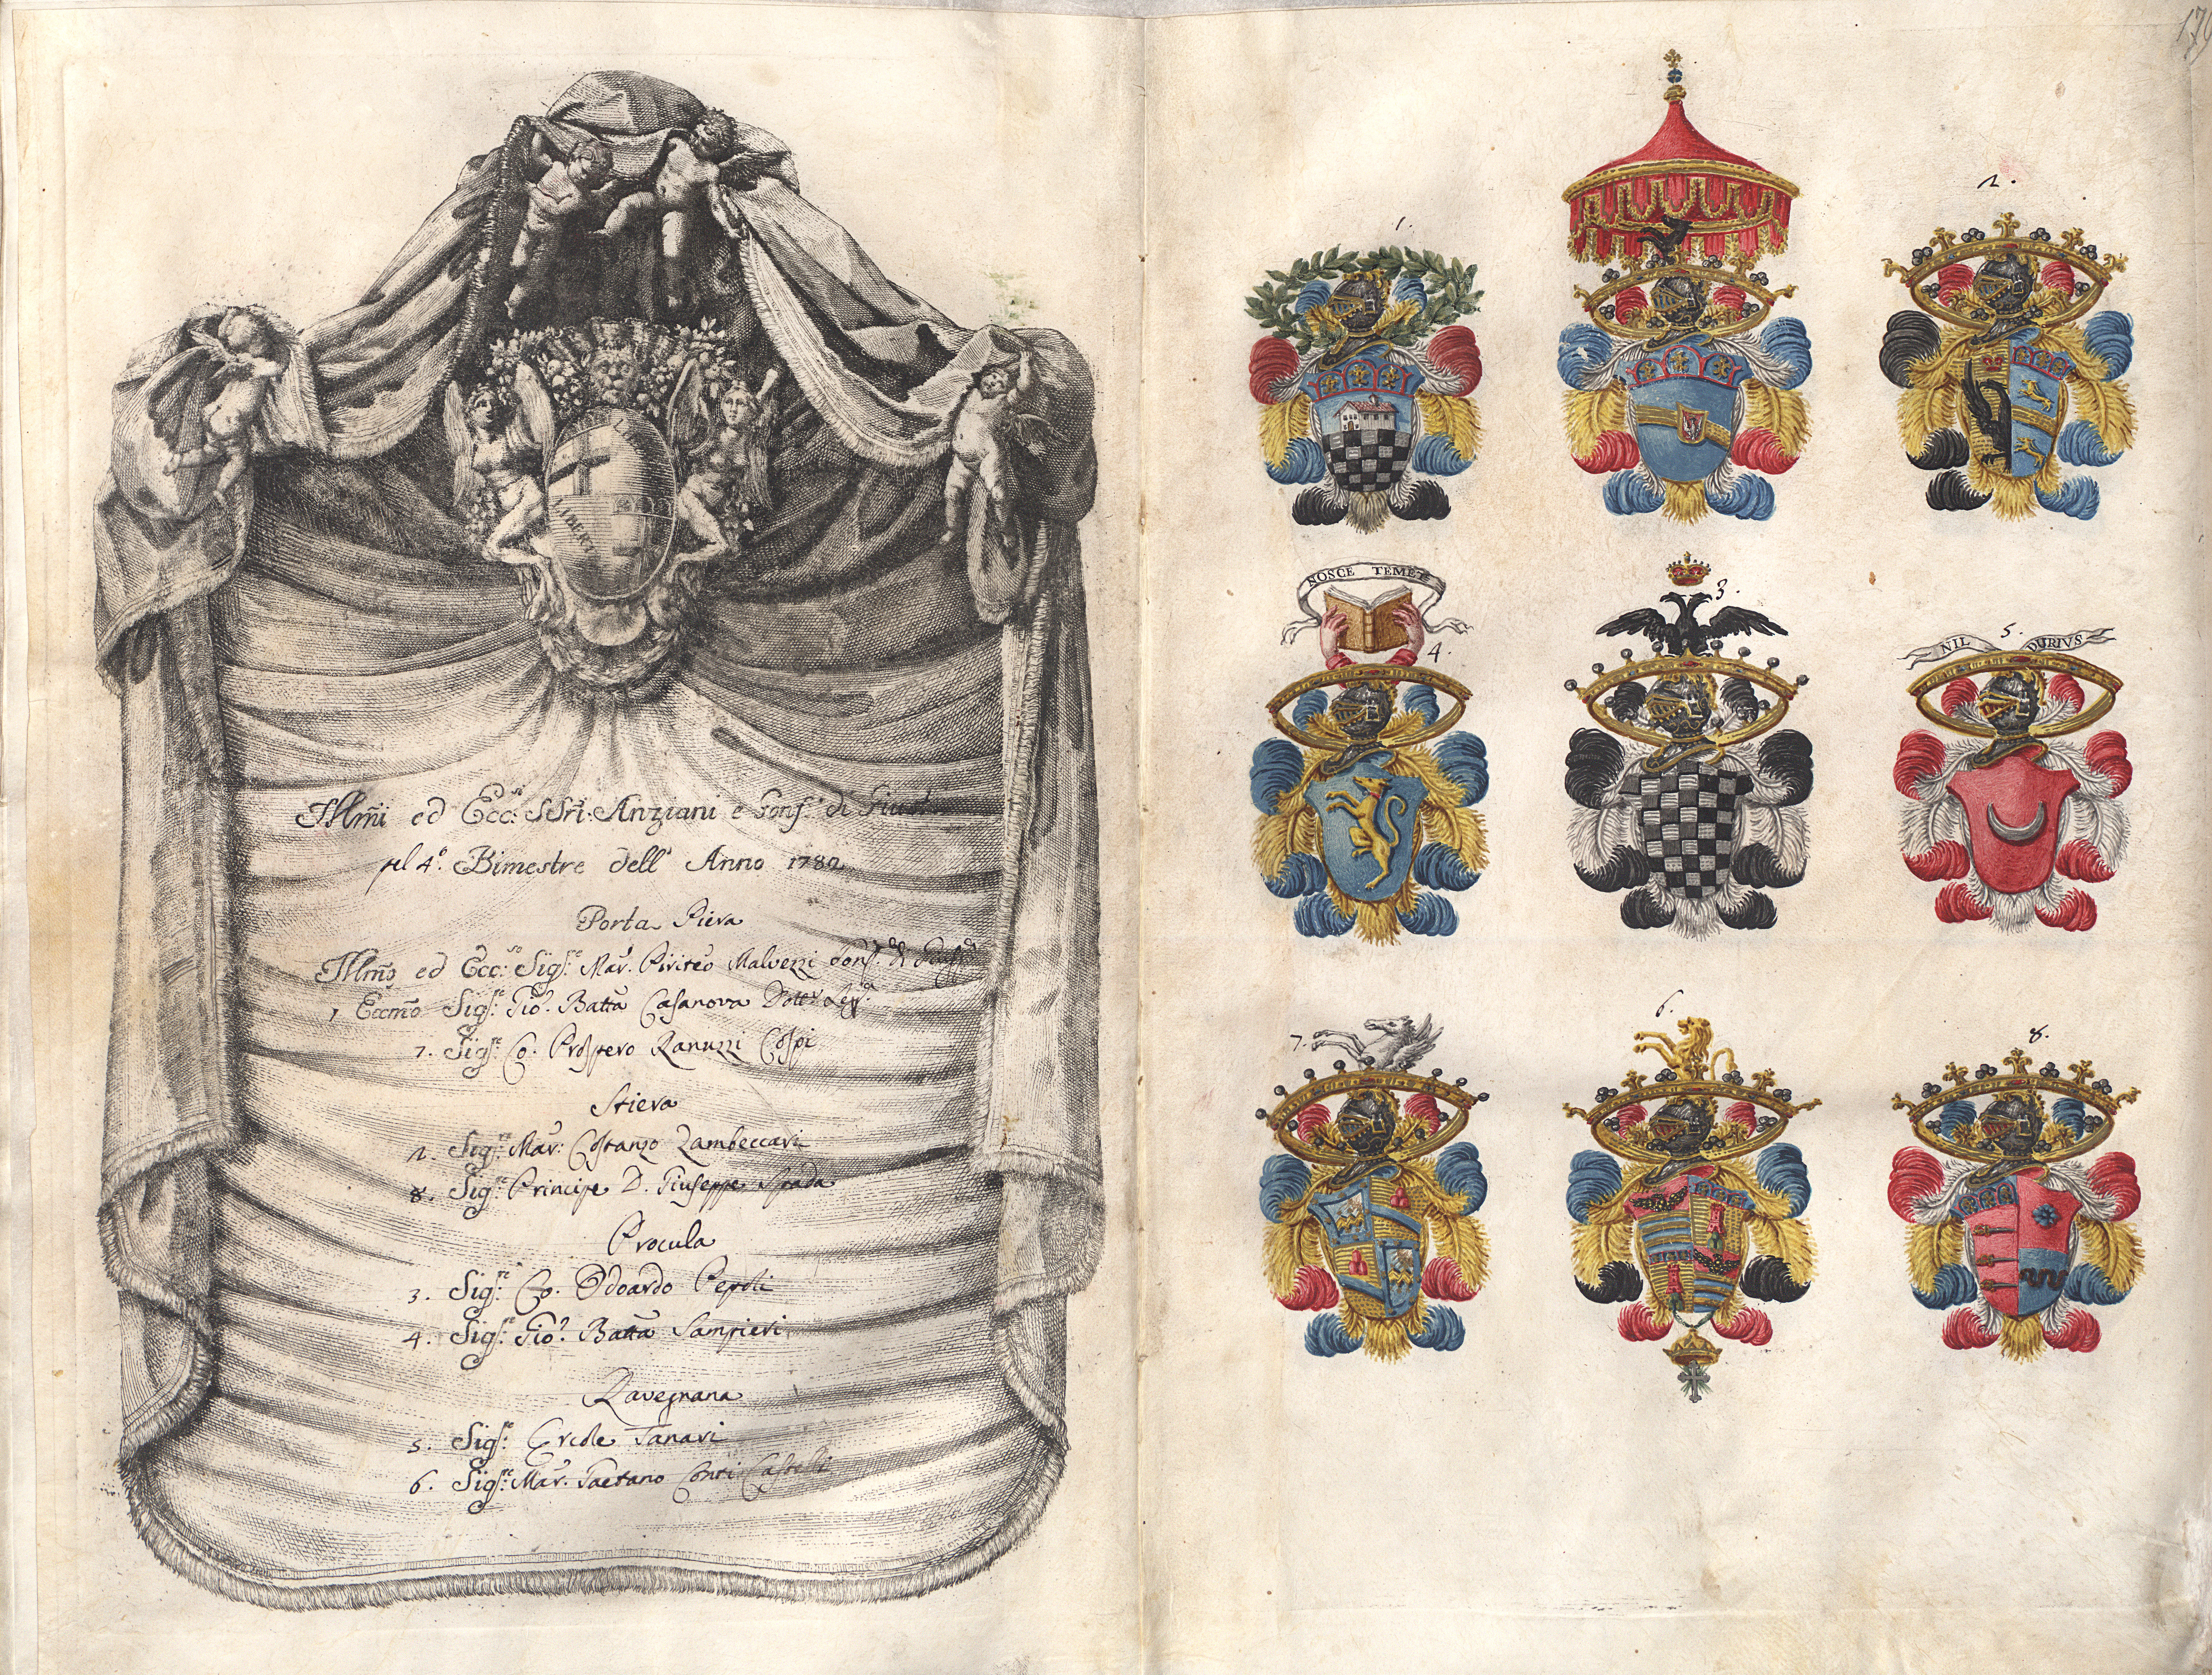 LIBERTAS
Illm̃i ed Ecc:si SSri: Anziani e Cons:i di Giust.
pel 4.o Bimestre dell' Anno 1782
Porta Piera
Illm̃o ed Ecc:so Sig:re Mar: Piriteo Malvezzi Conf:
1 Eccm̃o Sig:re Gio: Batt̃a Casanova Dott:r Leg:
7. Sig:re Co. Prospero Ranuzzi Cospi
Stiera
2. Sig:re Mar: Costanzo Zambeccari
8. Sig:re Principe D. Giuseppe Spada
Procula
3. Sig:re Co. Odoardo Pepoli
4. Sig:re Gio: Batt̃a Sampieri
Ravegnana
5. Sig:re Ercole Tanari
6. Sig:re Mar: Gaetano Conti Castelli
1.
2.
NOSCE TEMET
4.
3.
NIL DURIVS
5.
7.
6.
8.